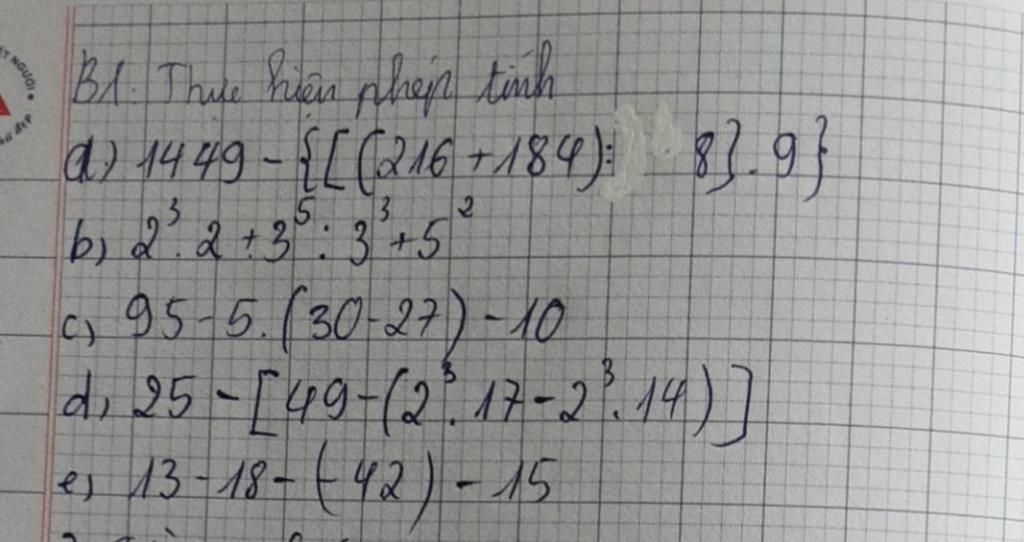 B1. Thực hiện phép tính
a) 1449 - {[(216 + 184) : 8] . 9}
b) 2³ . 2 + 3⁵ : 3³ + 5²
c) 95 - 5. (30 - 27) - 10
d) 25 - [49 - (2³ . 17 - 2³ . 14)]
e) 13 - 18 - (-42) - 15